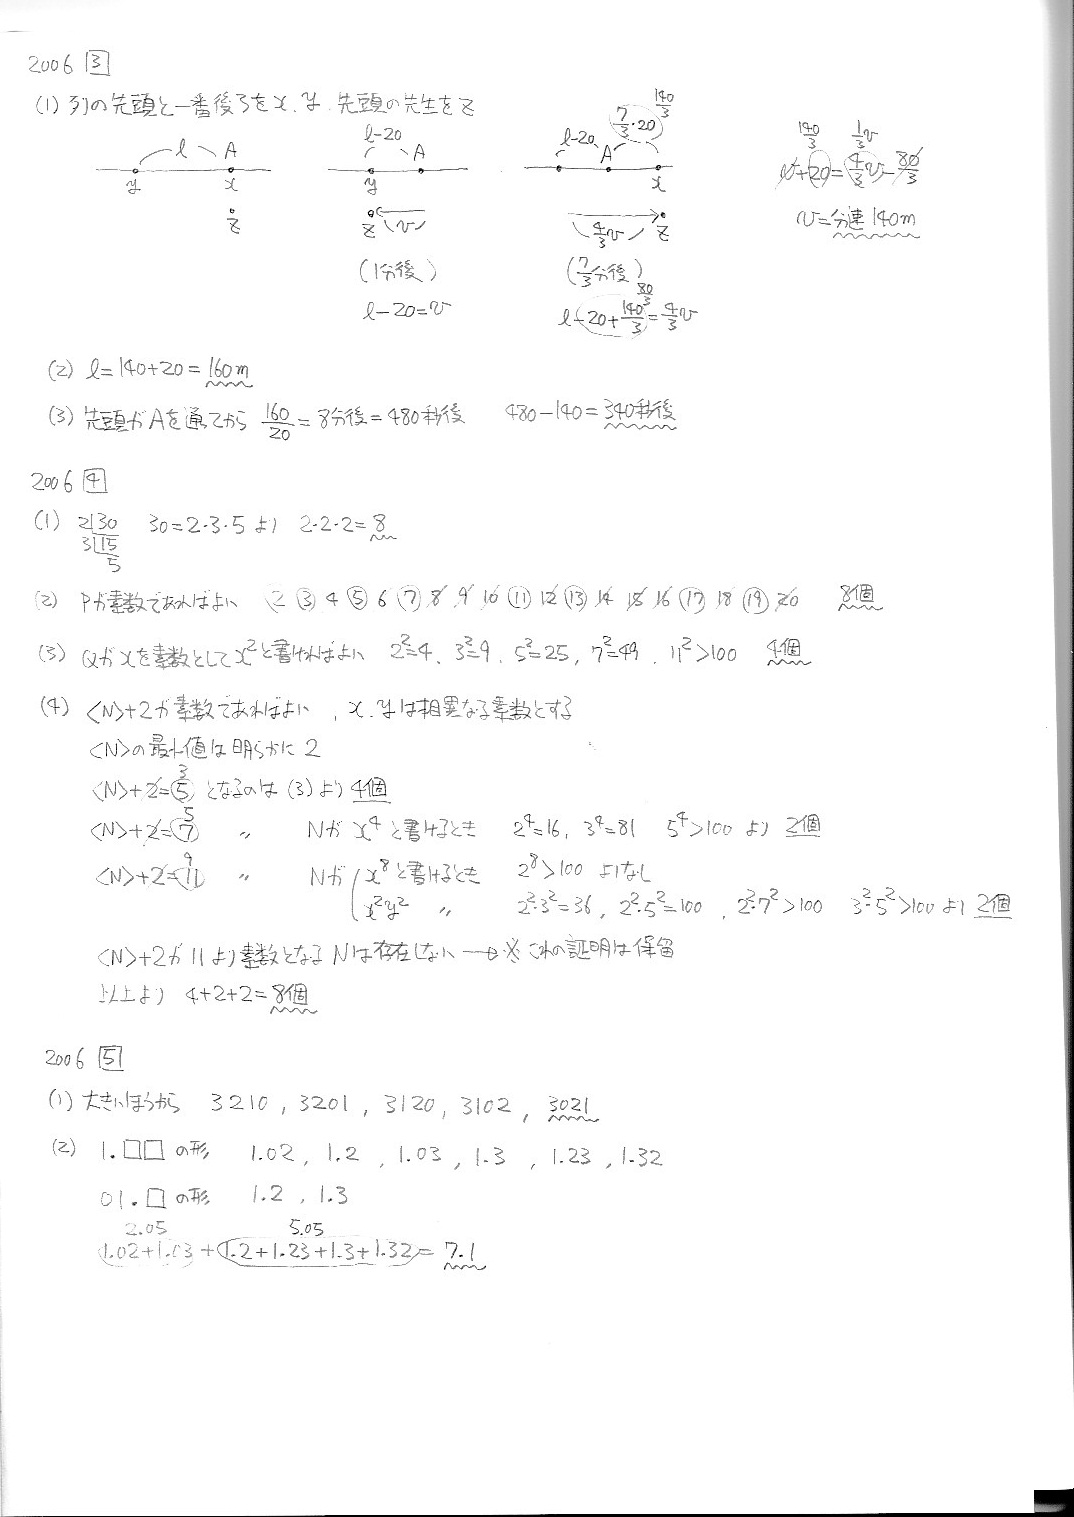 2006 3
(1) 列の先頭と一番後ろをx, y. 先頭の先生をz
l A
y x
z
l-20
A
y
z v
(1分後)
l-20=v
l-20 7/3・20 140/3
A
x
4/3v z
(7/3分後)
80/3
l-20+140/3=4/3v
140/3 1/3v
l+20=4/3v-80/3
v=分速140m
(2) l=140+20=160m
(3) 先頭がAを通ってから 160/20=8分後=480秒後 480-140=340秒後
2006 4
(1) 2|30 30=2・3・5より 2・2・2=8
3|15
5
(2) Pが素数であればよい 2 3 4 5 6 7 8 9 10 11 12 13 14 15 16 17 18 19 20 8個
(3) Qがxを素数としてx²と書ければよい 2²=4. 3²=9. 5²=25, 7²=49. 11²>100 4個
(4) <N>+2が素数であればよい, x.yは相異なる素数とする
<N>の最小値は明らかに2
3
<N>+2=5 となるのは(3)より4個
5
<N>+2=7 〃 Nがx⁴と書けるとき 2⁴=16, 3⁴=81 5⁴>100より 2個
9
<N>+2=11 〃 Nが x⁸と書けるとき 2⁸>100よりなし
x²y² 〃 2²・3²=36, 2²・5²=100, 2²・7²>100 3²・5²>100より 2個
<N>+2が11より素数となるNは存在しない→※これの証明は保留
以上より 4+2+2=8個
2006 5
(1) 大きいほうから 3210, 3201, 3120, 3102, 3021
(2) 1.□□の形 1.02, 1.2, 1.03, 1.3, 1.23, 1.32
01.□の形 1.2, 1.3
2.05 5.05
1.02+1.03+1.2+1.23+1.3+1.32=7.1